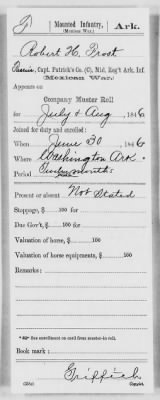 F | Mounted Infantry, | Ark.
(Mexican War.)
Robert H. Frost
Private, Capt. Patrick's Co. (C), Mtd. Reg't Ark. Inf.
(Mexican War.)
Appears on
Company Muster Roll
for July & Aug, 1846
Joined for duty and enrolled:
When June 30, 1846
Where Washington Ark.
Period Twelve months
Present or absent Not Stated
Stoppage, $ 100 for
Due Gov't, $ 100 for
Valuation of horse, $ 100
Valuation of horse equipments, $ 100
Remarks:
Book mark:
Griffich
Copyist.